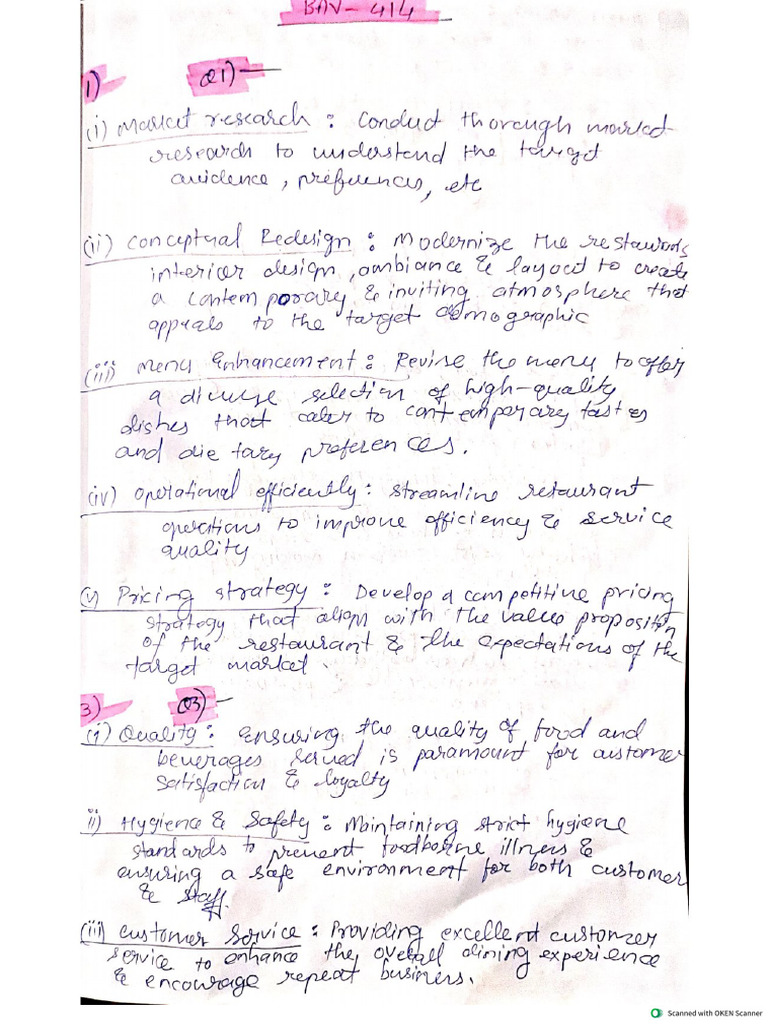 BAV-414
1) Q1)—
(i) Market research : Conduct thorough market
research to understand the target
auidence, preferences, etc
(ii) Conceptual Redesign : Modernize the restaurants
interior design, ambiance & layout to create
a contemporary & inviting atmosphere that
appeals to the target demographic
(iii) Menu Enhancement : Revise the menu to offer
a diverse selection of high-quality
dishes that cater to contemporary tastes
and dietary preferences.
(iv) Operational efficiently : streamline restaurant
operations to improve efficiency & service
quality
(v) Pricing strategy : Develop a competitive pricing
strategy that align with the value proposition
of the restaurant & the expectations of the
target market.
3) Q3)—
(i) Quality : Ensuring the quality of food and
beverages served is paramount for customer
satisfaction & loyalty
ii) Hygiene & Safety : Maintaining strict hygiene
standards to prevent foodborne illness &
ensuring a safe environment for both customer
& staff.
(iii) Customer Service : Providing excellent customer
service to enhance the overall dining experience
& encourage repeat business.
Scanned with OKEN Scanner